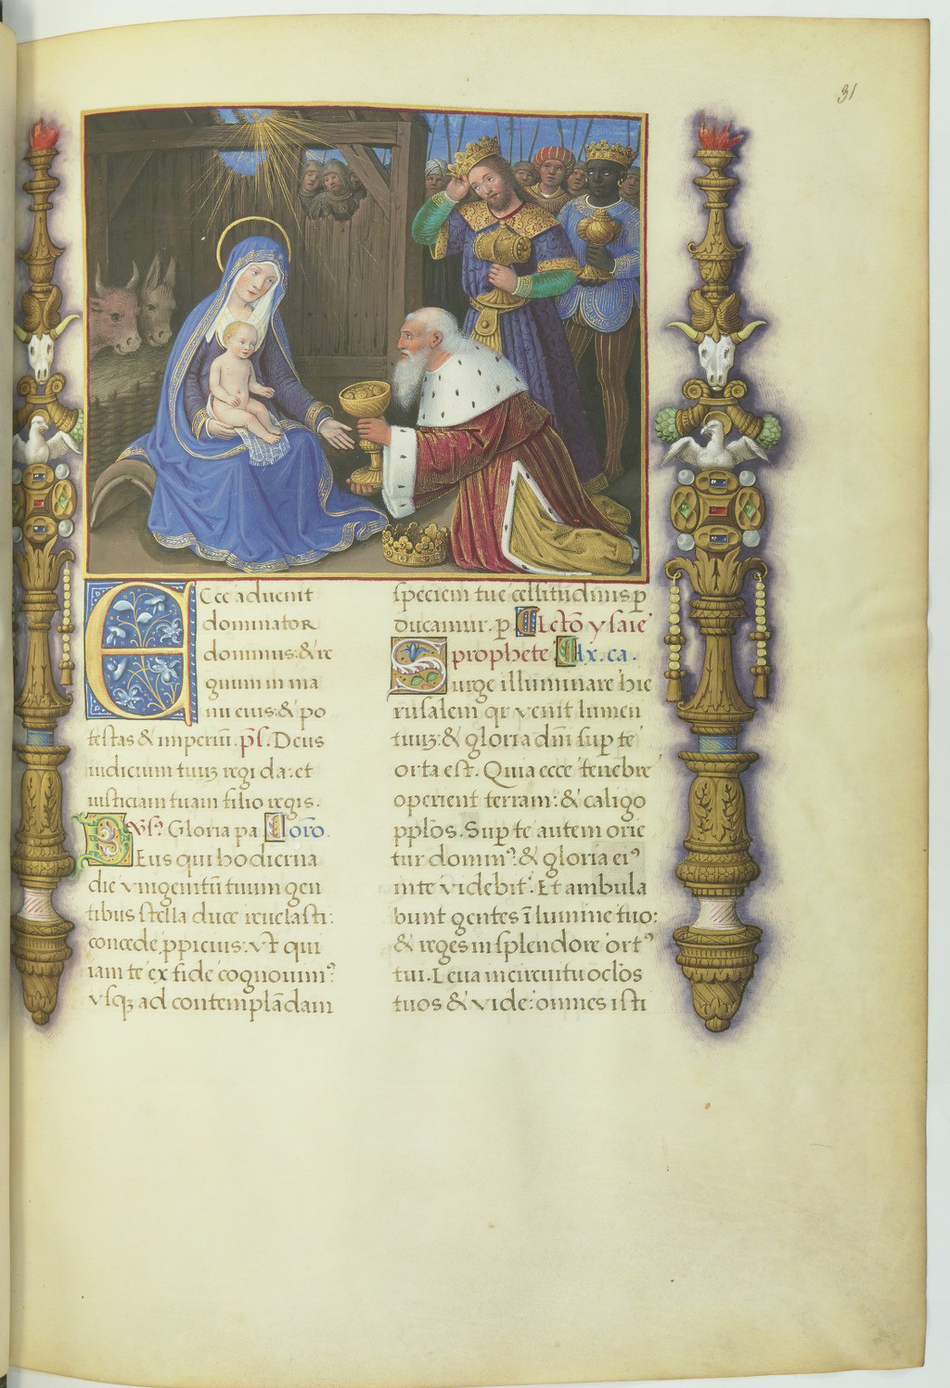 31
Ecce aduenit
dominator
dominus:& re
gnum in ma
nu eius:& po
testas & imperiū.ps̄.Deus
iudicium tuuʒ regi da:et
iusticiam tuam filio regis.
Vs̄? Gloria pa Oro.
Deus qui hodierna
die vnigenitū tuum gen
tibus stella duce reuelasti:
concede ꝓpicius:vt qui
iam te ex fide cognouimꝰ
vsqꝫ ad contemplādam
speciem tue celsitudinis ꝑ
ducamur.ꝑ Lectō ysaie
prophete lx.ca.
Surge illuminare hie
rusalem qr venit lumen
tuuʒ:& gloria dn̄i suꝑ te
orta est. Quia ecce tenebre
operient terram:& caligo
pplōs. Suꝑ te autem orie
tur dominꝰ:& gloria eiꝰ
in te videbit᷑. Et ambula
bunt gentes ī lumine tuo:
& reges in splendore ortꝰ
tui. Leua in circuitu oclōs
tuos & vide:omnes isti